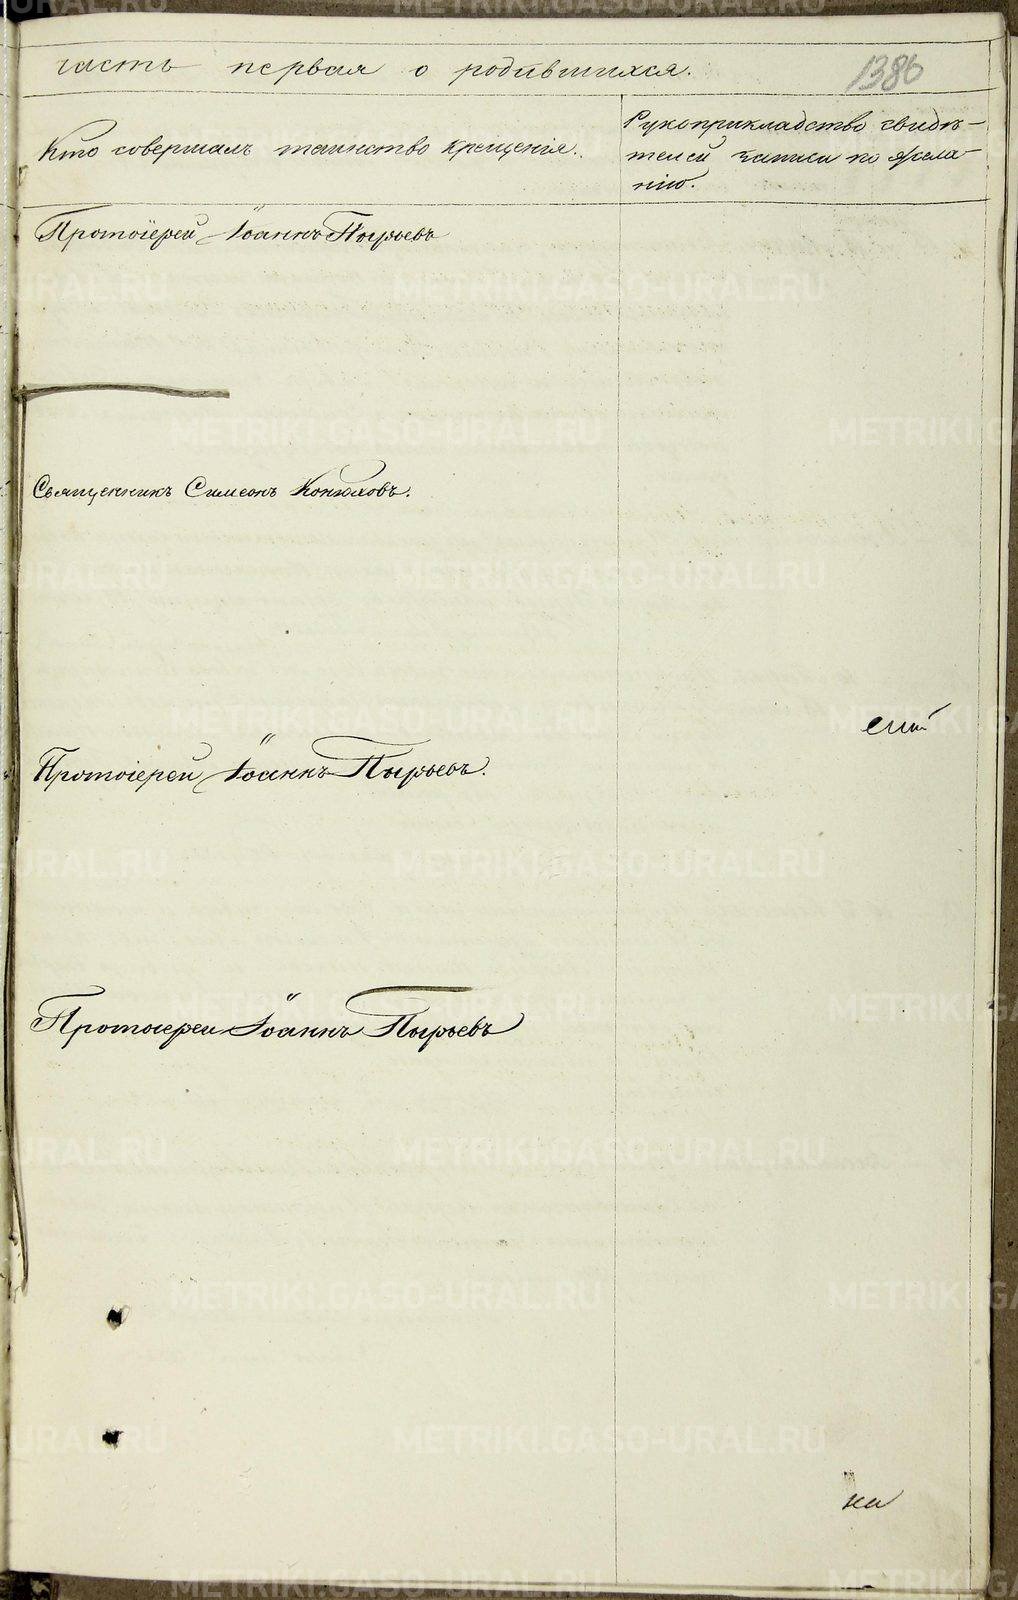 часть первая о родившихся.
1386
Кто совершалъ таинство крещенія.
Рукоприкладство свидѣ-
телей записи по жела-
нію.
Протоіерей Іоаннъ Пырьевъ
Священникъ Симеонъ Конюховъ.
Протоіерей Іоаннъ Пырьевъ.
Протоіерей Іоаннъ Пырьевъ
на
METRIKI.GASO-URAL.RU